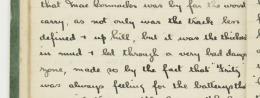 that Mac Cormacks was by far the worst
carry, as not only was the track less
defined + up hill, but it was the thickest
in mud + led through a very bad danger
zone, made so by the fact that "Fritz"
was always feeling for the batterys the